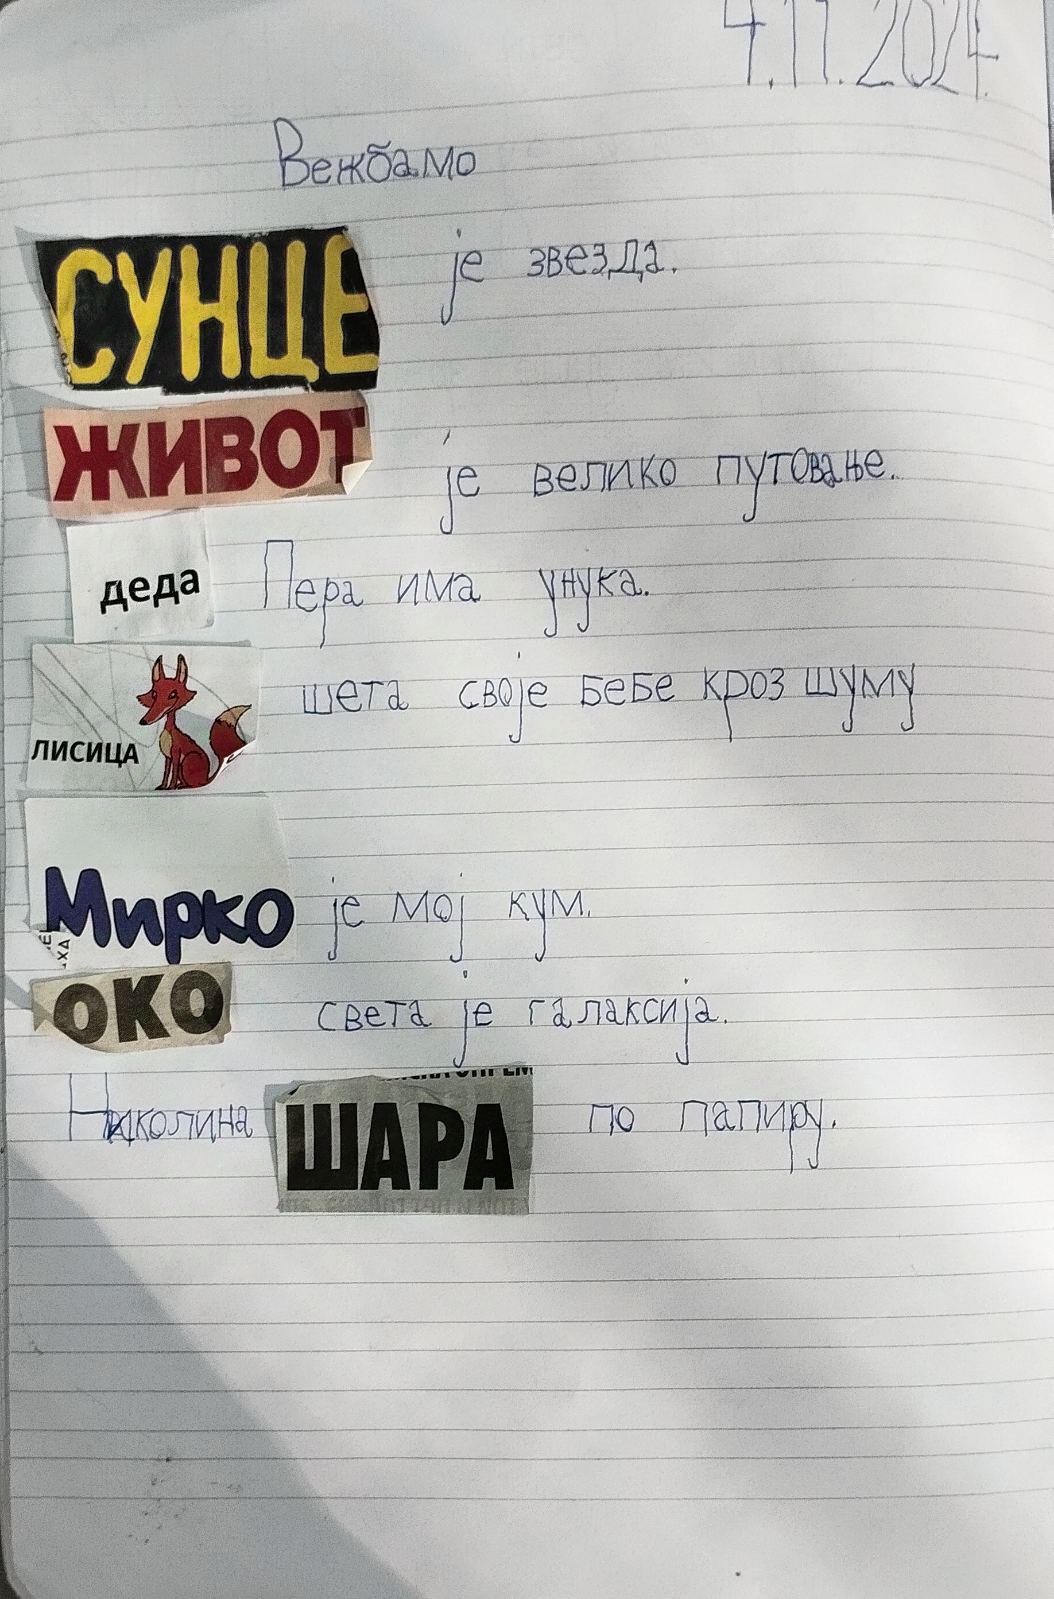 4.11.2024.
Вежбамо
СУНЦЕ је звезда.
ЖИВОТ је велико путовање.
деда Пера има унука.
ЛИСИЦА шета своје бебе кроз шуму
Мирко је мој кум.
ОКО света је галаксија.
Николина ШАРА по папиру.